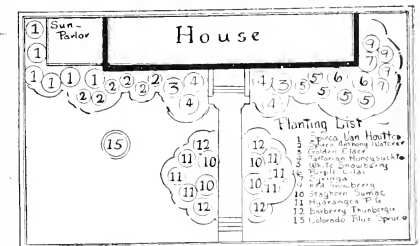 Sun-
Parlor
House
1 1 1 1 1 1 1 2 2 2 2 2 2 3 4 4 4
4 4 3 5 5 5 5 5 6 6 6 7 9 9 9
15
12 11 10 11 11 10 11 10 12
12 11 10 11 10 11 10 11 12
Planting List
1 Spirea Van Houttei
2 Spirea Anthony Waterer
3 Golden Elder
4 Tartarian Honeysuckle
5 White Snowberry
6 Purple Lilac
7 Syringa
Red Snowberry
10 Staghorn Sumac
11 Hydrangea P G
12 Barberry Thunbergii
15 Colorado Blue Spruce